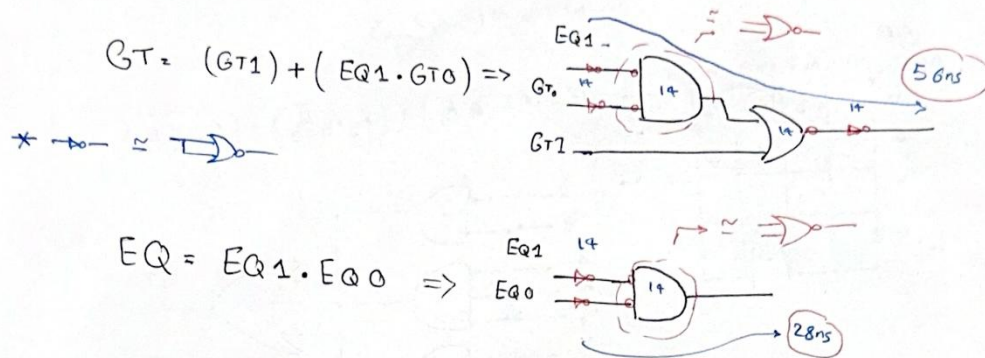 GT= (GT1) + (EQ1·GT0) =>
EQ1
GT0
GT1
14
14
14
14
≅
56ns
* ≅
EQ = EQ1·EQ0 =>
EQ1
EQ0
14
14
≅
28ns